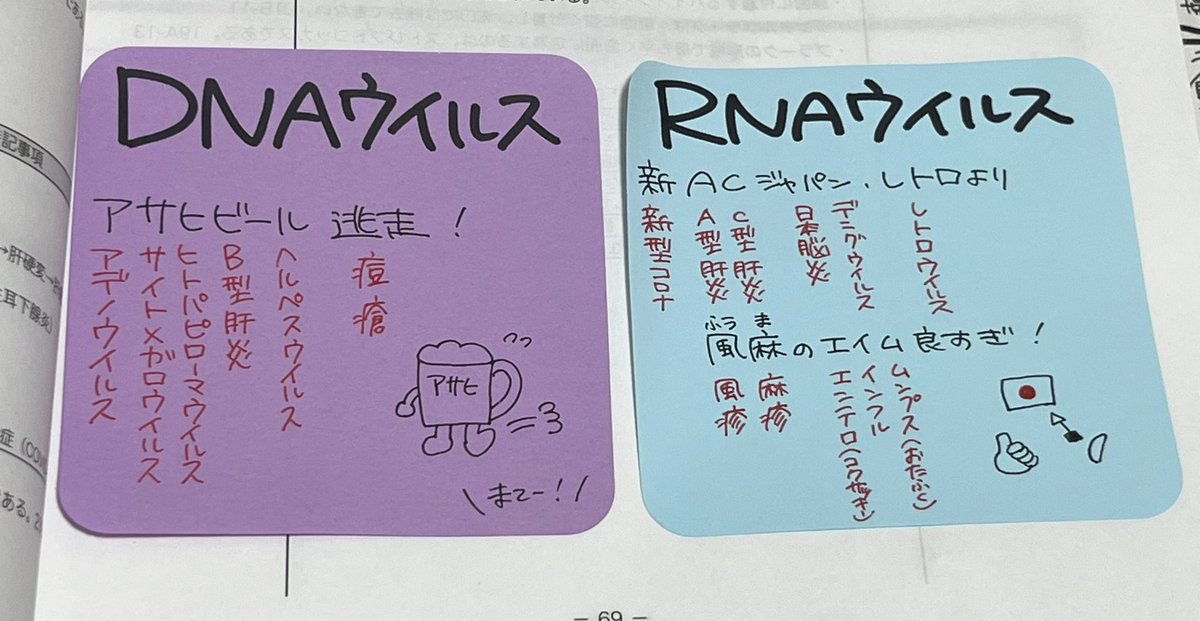 ・プラークの
19A-13
記記事項
→肝硬変→
性耳下腺炎
症（COV
ある。2
DNAウイルス
アサヒビール 逃走！
アデノウイルス
サイトメガロウイルス
ヒトパピローマウイルス
B型肝炎
ヘルペスウイルス
痘瘡
アサヒ
\まてー！/
RNAウイルス
新ACジャパン、レトロより
新型コロナ
A型肝炎
C型肝炎
日本脳炎
デングウイルス
レトロウイルス
ふう ま
風麻のエイム良すぎ！
風疹
麻疹
エンテロ(コクサッキー)
インフル
ムンプス(おたふく)
— 69 —